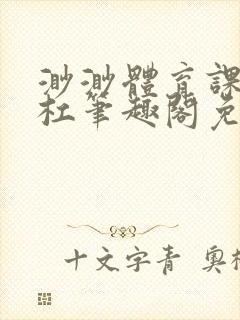 渺渺體育課
杜筆趣閣免
十文字青 奧